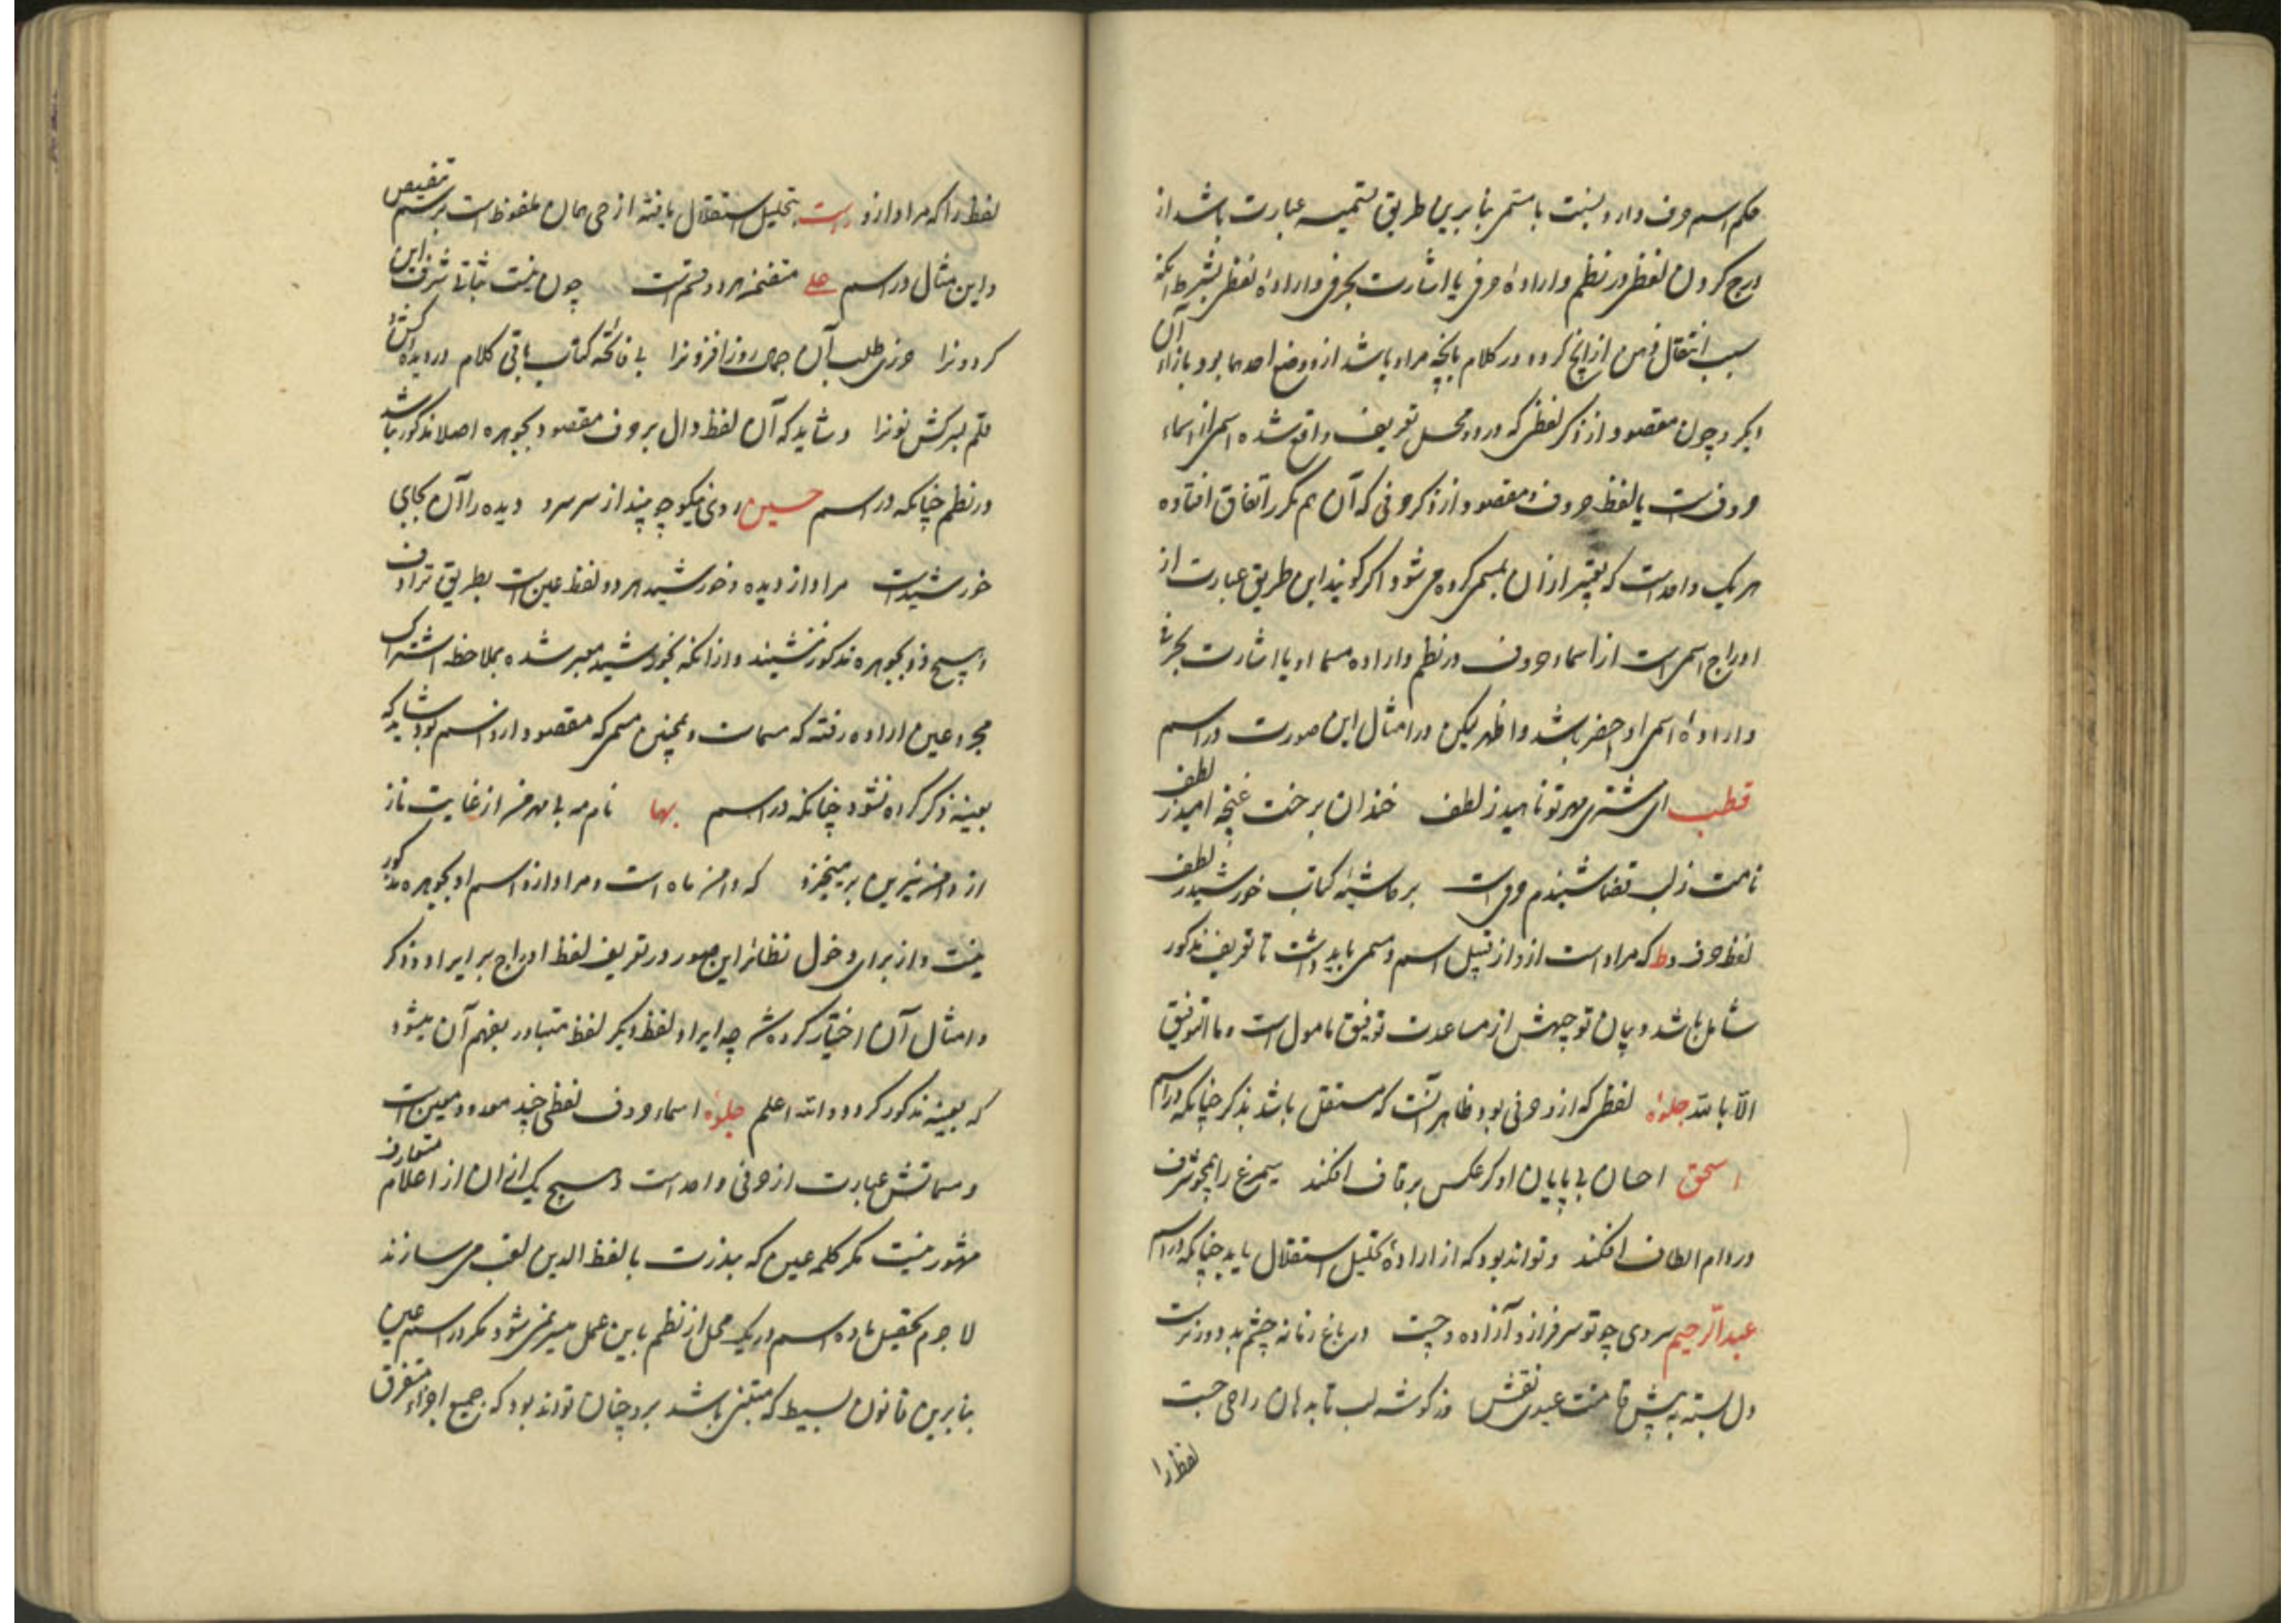 حکم اسم حرف دارد نسبت با مسمی بنا برین طریق تسمیه عبارت باشد از
درج کردن لفظی در نظم و ارادهٔ حرفی یا اشارت بحرفی و ارادهٔ لفظی بشرط آنکه
سبب انتقال ذهن از آنچ کرده در کلام بانچه مراد باشد ازو وضع احدهما بود بازاء آن
دیگر و چون مقصود از ذکر لفظی که در محل تعریف واقع شده اسمی از اسماء
حروفست یا لفظ حروف و مقصود از ذکر حرفی که آن هم مکرر اتفاق افتاده
هر یک واحدست که تعبیر از آن بمسمی کرده می شود اگر گویند این طریق عبارت از
ادراج اسمی است از اسماء حروف در نظم و اراده مسماء او یا اشارت بحرفی
و ارادهٔ اسمی او اخصر باشد و اظهر لیکن در امثال این صورت در اسم
قطب ای مشتری مهر تو ناهید ز لطف خندان برخت غنچه امید ز لطف
نامت ز لب قضا شنیدم وقت بر حاشیهٔ کتاب خورشید ز لطف
لفظ حرف و ط که مراد است ازو از قبیل اسم و مسمی باید داشت تا تعریف مذکور
شامل باشد و بیان توجیهش از مساعدت توفیق مامول است و ما التوفیق
الا بالله جلوه لفظی که ازو حرفی بود ظاهر آنست که مستقل باشد بذکر چنانکه در اسم
اسحق احسان بی پایان او گر عکس بر قاف افکند سیمرغ را همچو شرف
در دام الطاف افکند و تواند بود که از ارادهٔ تحلیل استقلال یابد چنانکه در اسم
عبدالرحیم سروی چو تو سرفراز و آزاده و چست در باغ زمانه چشم بد دور نرست
دل بسته به پیش قامتت عبدی نقش وز گوشه لب تا به دهان راحی جست
لفظ را
لفظ را که مراد ازو راست بتحلیل استقلال یافته از حی همان ملفوظ است بر سبیل تنصیص
و این مثال در اسم علی متضمن هر دو قسمت چون نیست ثباتی شرف این
کردونرا حرزی طلب آن جمال روزافزونرا بی فاتحه کتاب باقی کلام در دیده کش و
قلم بسر کش نونرا و شاید که آن لفظ دال بر حرف مقصود بجوهره اصلا مذکور نباشد
در نظم چنانکه در اسم حسین روی نیکو چو بیند از سر سرو دیده را آن بجای
خورشیدست مراد از دیده و خورشید هر دو لفظ عین است بطریق ترادف
و هیچ دو بجوهره مذکور نشدند و از آنکه بخورشید معبر شده بملاحظه اشتراک
مجرد عین اراده رفته که مسمات و همچنین مسمی که مقصود ازو اسم بود شاید که
بعینه ذکر کرده نشود چنانکه در اسم بها نام مه با مهر من از غایت ناز
از دامن نیرین بر میخیزد که دامن ماه است و مراد ازو اسم او بجوهره مذکور
نیست و از برای دخول نظائر این صور در تعریف لفظ ادراج بر ایراد و ذکر
و امثال آن اختیار کرده شد چه ایراد لفظ و ذکر لفظ متبادر بفهم آن میشود
که بعینه مذکور گردد والله اعلم جلوه اسماء حروف لفظی چند معدود معین است
و مسماتش عبارت از حرفی واحدست و هیچ یک از ان از اعلام متعارف
مشهور نیست مگر کلمه عین که بندرت با لفظ الدین لقب می سازند
لا جرم تحصیل ماده اسم در یک محل از نظم باین عمل میسر نمی شود مگر در اسم عین
بنا برین قانون بسیط که مبتنی باشد برو چنان تواند بود که جمیع اجزاء متفرق